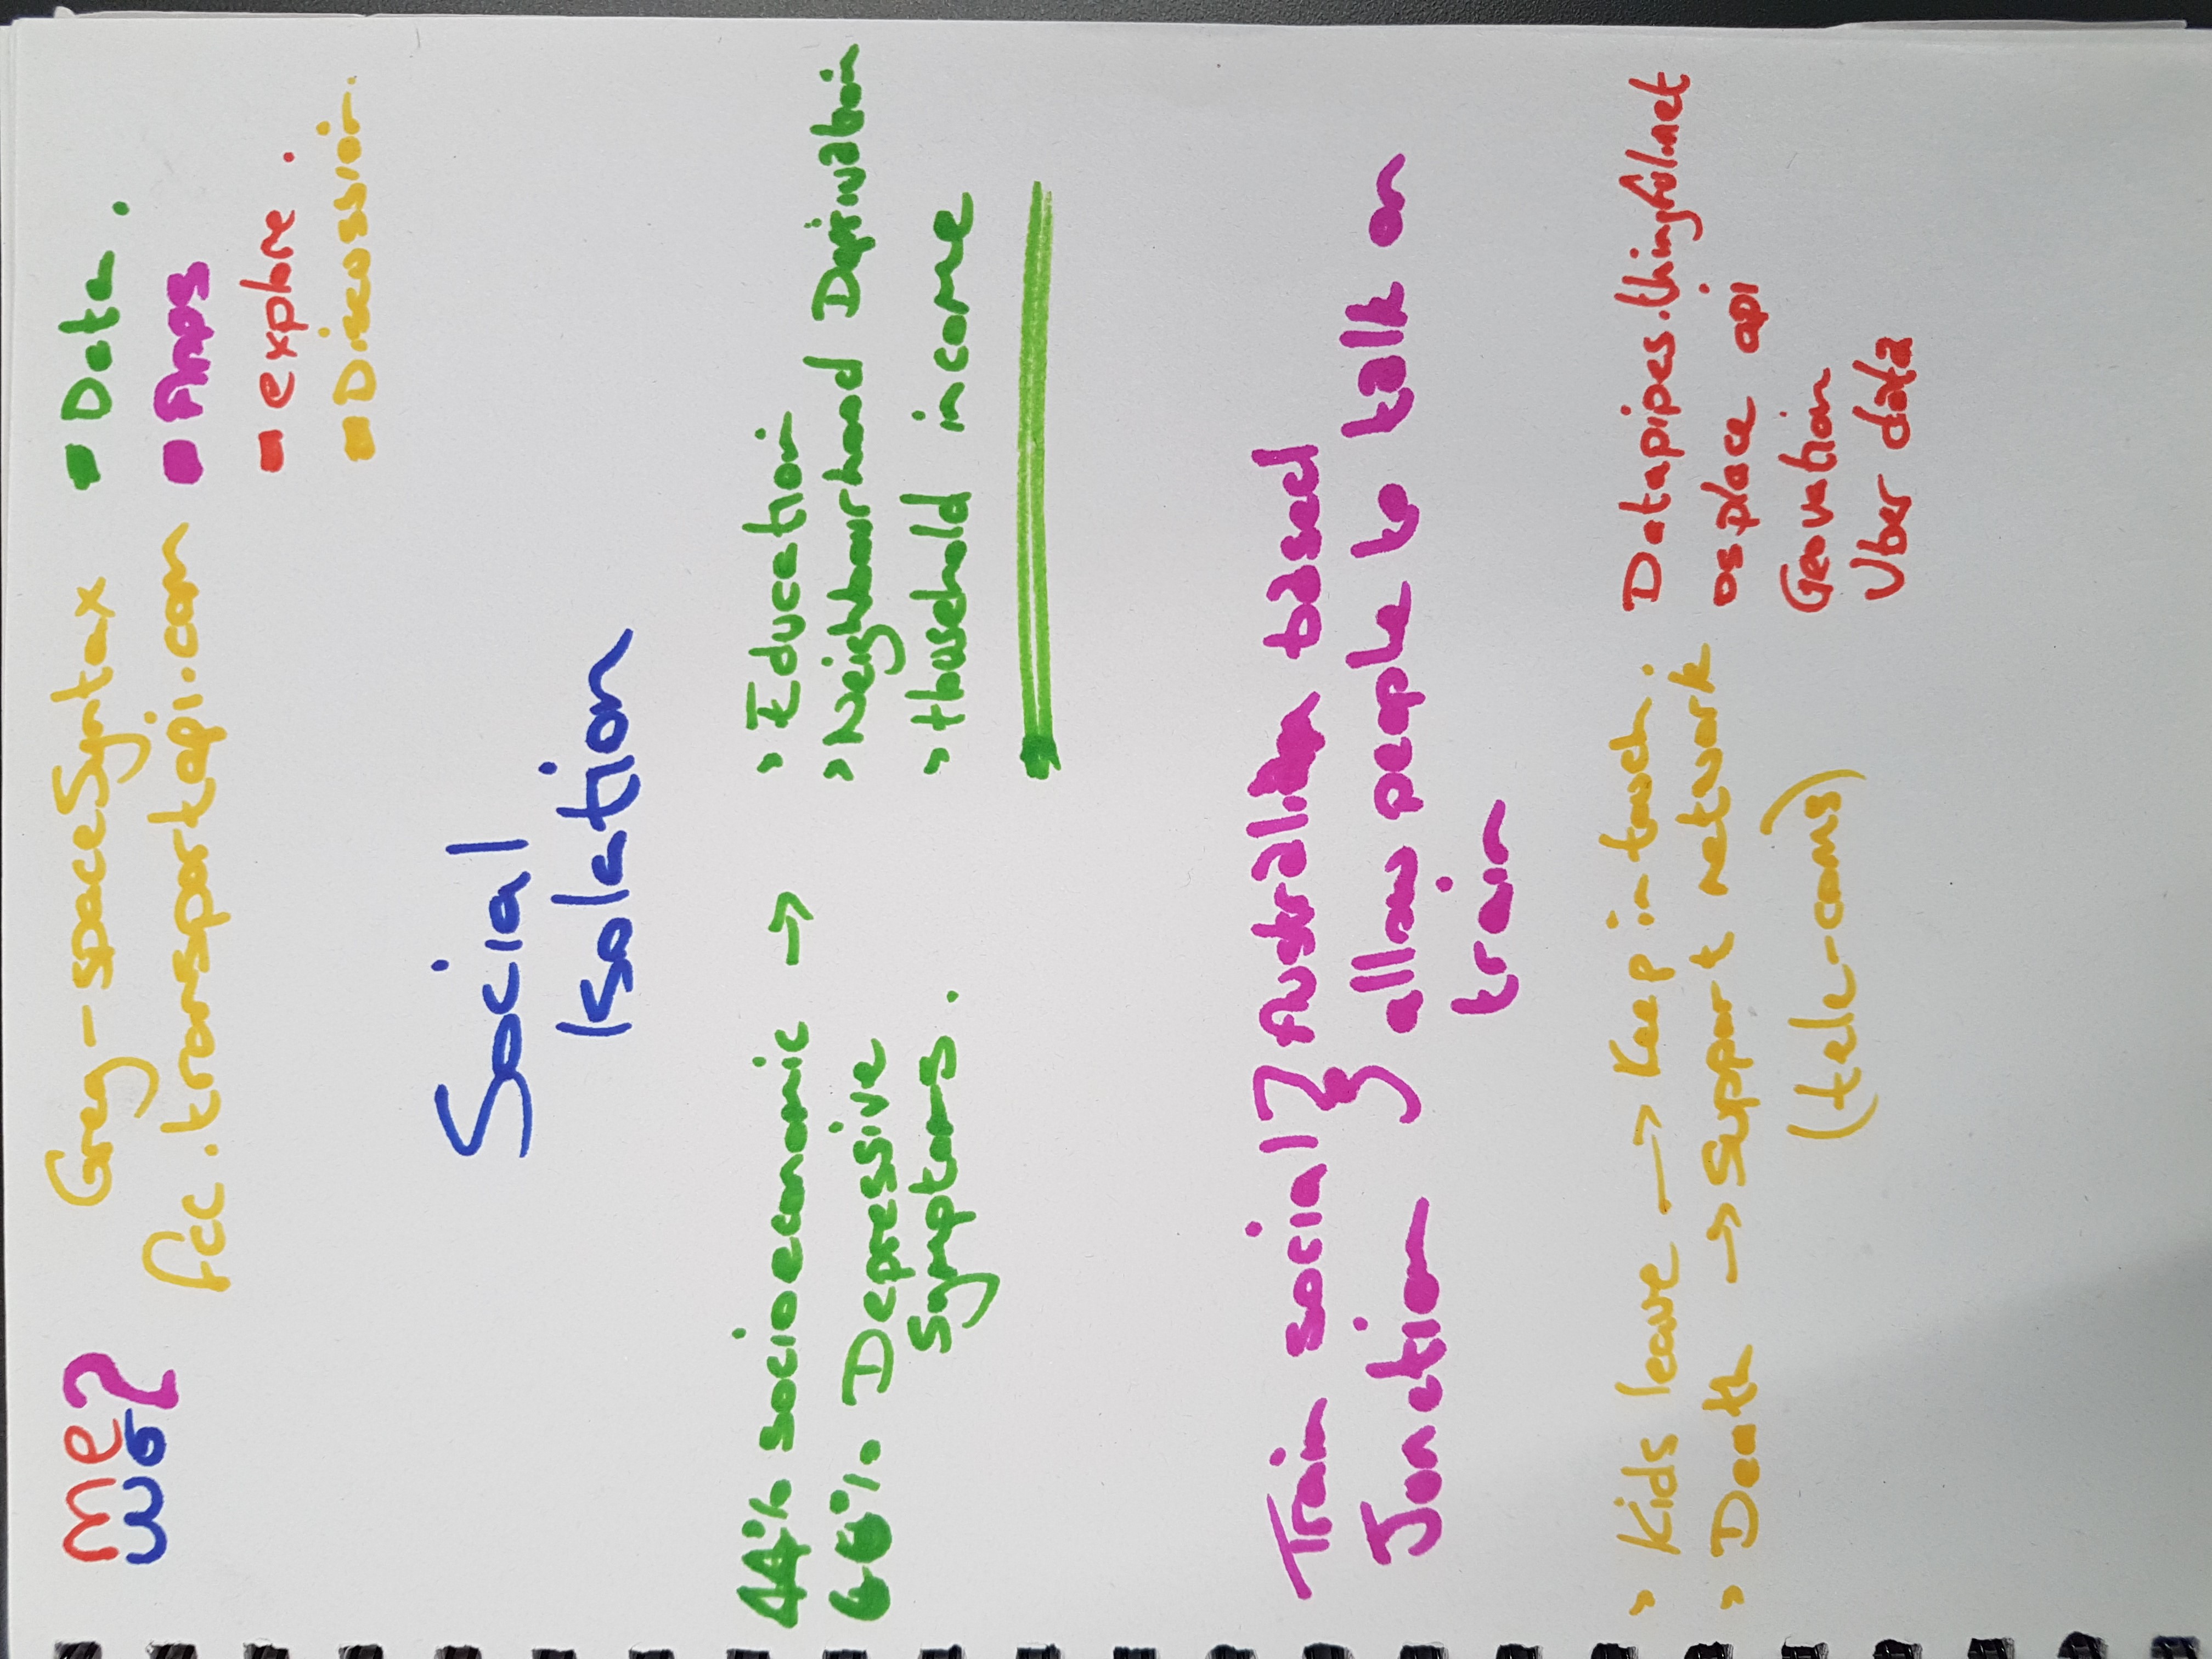 me?
wo
Greg - spaceSyntax
fcc.transportapi.com
Data.
Apps
explore.
Discussion.
Social
Isolation
44% socioeconomic →
66% Depressive
Symptoms.
> Education
> Neighbourhood Deprivation
> Household income
Train social } Australian based
Junction } allow people to talk on
train
> Kids leave → Keep in touch.
> Death → Support network
(tele-coms)
Datapipes.thingful.net
os place api
Geovation
Uber data